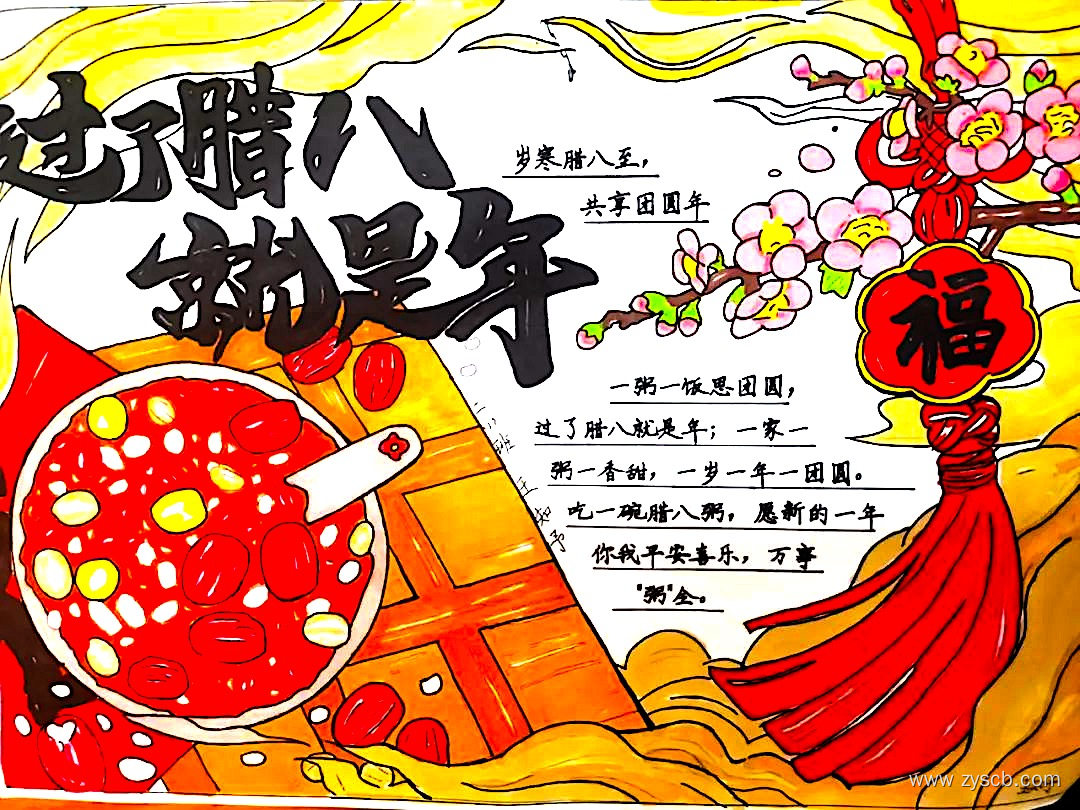 过了腊八
就是年
岁寒腊八至，
共享团圆年
福
一粥一饭思团圆，
过了腊八就是年；一家一
粥一香甜，一岁一年一团圆。
吃一碗腊八粥，愿新的一年
你我平安喜乐，万事
"粥"全。
www.zyscb.com